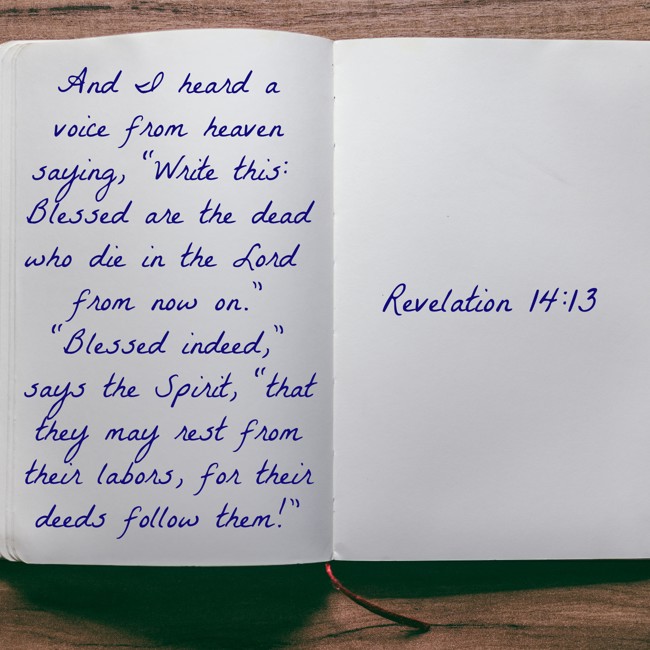 And I heard a
voice from heaven
saying, "Write this:
Blessed are the dead
who die in the Lord
from now on."
"Blessed indeed,"
says the Spirit, "that
they may rest from
their labors, for their
deeds follow them!"
Revelation 14:13